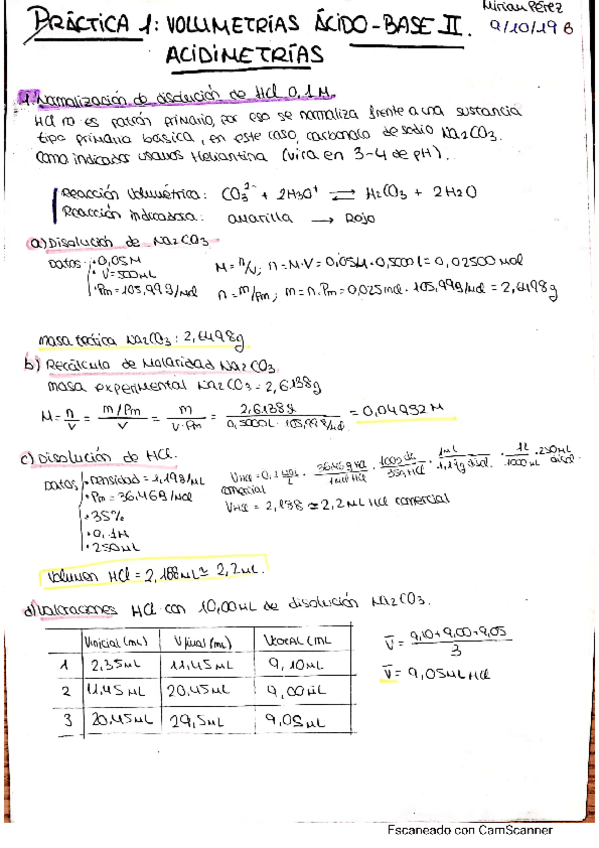 Mirian Pérez
PRÁCTICA 1: VOLUMETRÍAS ÁCIDO-BASE II.
9/10/19 B
ACIDIMETRÍAS
1. Normalización de disolución de HCl 0,1 M.
HCl no es patrón primario, por eso se normaliza frente a una sustancia
tipo primaria básica, en este caso, carbonato de sodio Na2CO3.
Como indicador usamos Heliantina (vira en 3-4 de pH).
Reacción volumétrica: CO3²⁻ + 2H3O⁺ ⇌ H2CO3 + 2H2O
Reacción indicadora: amarilla → Rojo
a) Disolución de Na2CO3
Datos · 0,05M
· V = 500mL
· Pm = 105,99g/mol
M = n/V; n = M·V = 0,05M · 0,5000 l = 0,02500 mol
n = m/Pm; m = n·Pm = 0,025mol · 105,99g/mol = 2,6498g
masa teórica Na2CO3: 2,6498g
b) Recálculo de Molaridad Na2CO3
masa experimental Na2CO3 = 2,6138g
M = n/V = m/Pm / V = m / V·Pm = 2,6138g / 0,5000L · 105,99g/mol = 0,04932 M
c) Disolución de HCl.
Datos · Densidad = 1,19g/mL
· Pm = 36,46g/mol
· 35%
· 0,1M
· 250mL
VHCl = 0,1 mol/L · 36,46g HCl / 1mol HCl · 100g dis / 35g HCl · 1mL / 1,19g disol. · 1L / 1000mL · 250mL disol.
comercial
VHCl = 2,188 ≃ 2,2mL HCl comercial
Volumen HCl = 2,188mL ≃ 2,2mL.
d) Valoraciones HCl con 10,00mL de disolución Na2CO3.
Vinicial (mL) Vfinal (mL) VTOTAL (mL
1 2,35mL 11,45mL 9,10mL
2 11,45mL 20,45mL 9,00mL
3 20,45mL 29,5mL 9,05mL
V̄ = 9,10+9,00+9,05 / 3
V̄ = 9,05mL HCl
Escaneado con CamScanner